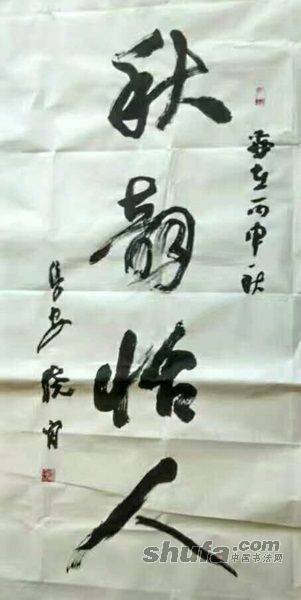 秋韵怡人
岁在丙申秋
长安晓
shufa.com
中国书法网